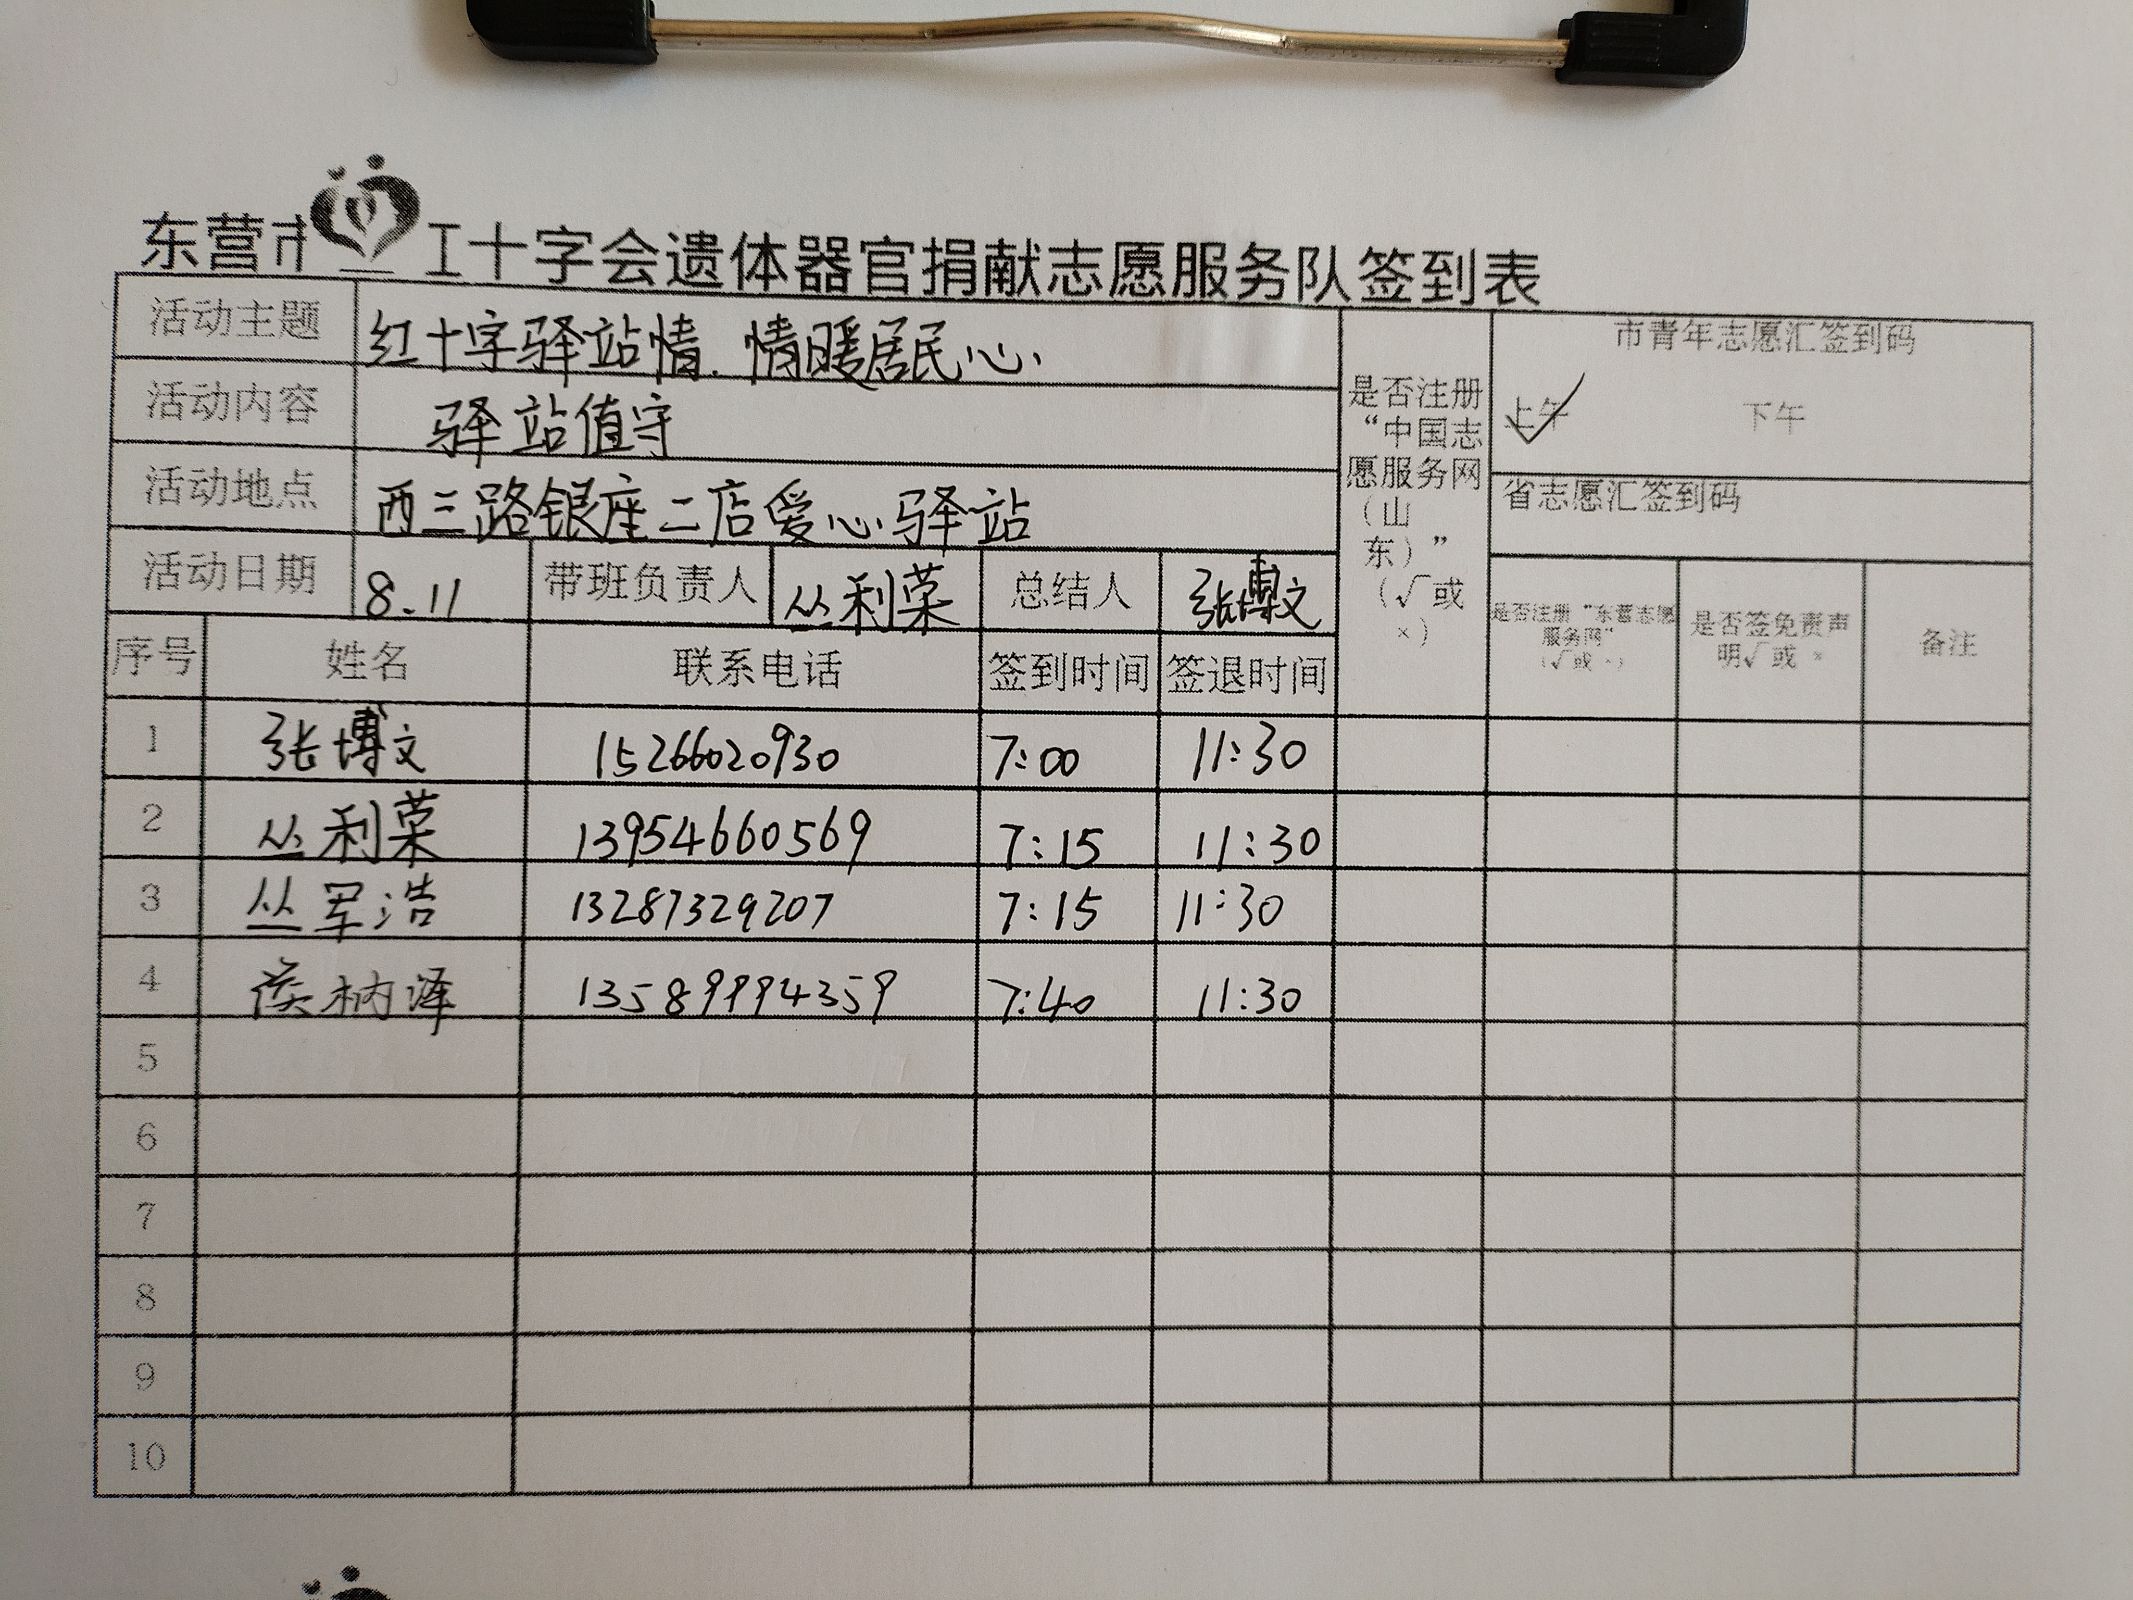 东营市红十字会遗体器官捐献志愿服务队签到表
活动主题 红十字驿站情.情暖居民心
活动内容 驿站值守
活动地点 西三路银座二店爱心驿站
活动日期 8.11 带班负责人 丛利荣 总结人 张博文
是否注册
“中国志
愿服务网
(山
东)”
(√或
×)
市青年志愿汇签到码
上午 下午
省志愿汇签到码
是否注册“东营志愿
服务网”
(√或×)
是否签免责声
明√或×
备注
序号 姓名 联系电话 签到时间 签退时间
1 张博文 15266020930 7:00 11:30
2 丛利荣 13954660569 7:15 11:30
3 丛军浩 13287329207 7:15 11:30
4 侯柄泽 13589994359 7:40 11:30
5
6
7
8
9
10